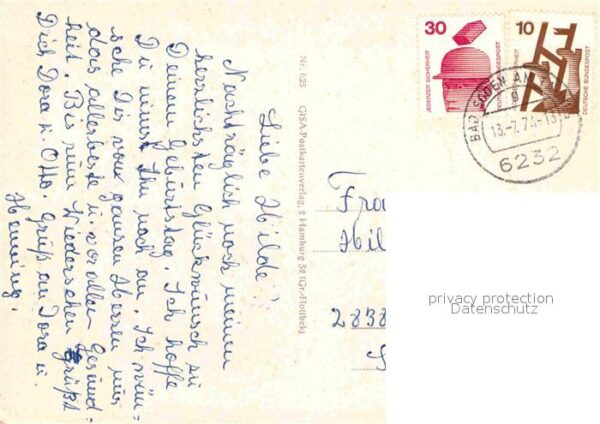 Liebe Hilde!
Nachträglich noch meinen
herzlichsten Glückwunsch zu
Deinem Geburtstag. Ich hoffe
Du nimmst ihn noch an. Ich wün=
sche Dir von ganzem Herzen nur
das allerbeste u. vor allem Gesund=
heit. Bis zum Wiedersehen grüßt
Dich Dora u. Otto. Gruß an Dora u.
Henning.
Nr. 625 GISA-Postkartenverlag, 2 Hamburg 52 (Gr.-Flottbek)
30
JEDERZEIT SICHERHEIT
DEUTSCHE BUNDESPOST
10
JEDERZEIT SICHERHEIT
DEUTSCHE BUNDESPOST
BAD SODEN AM
13.-7.74-13
6232
Fra
Hil
2838
S
privacy protection
Datenschutz